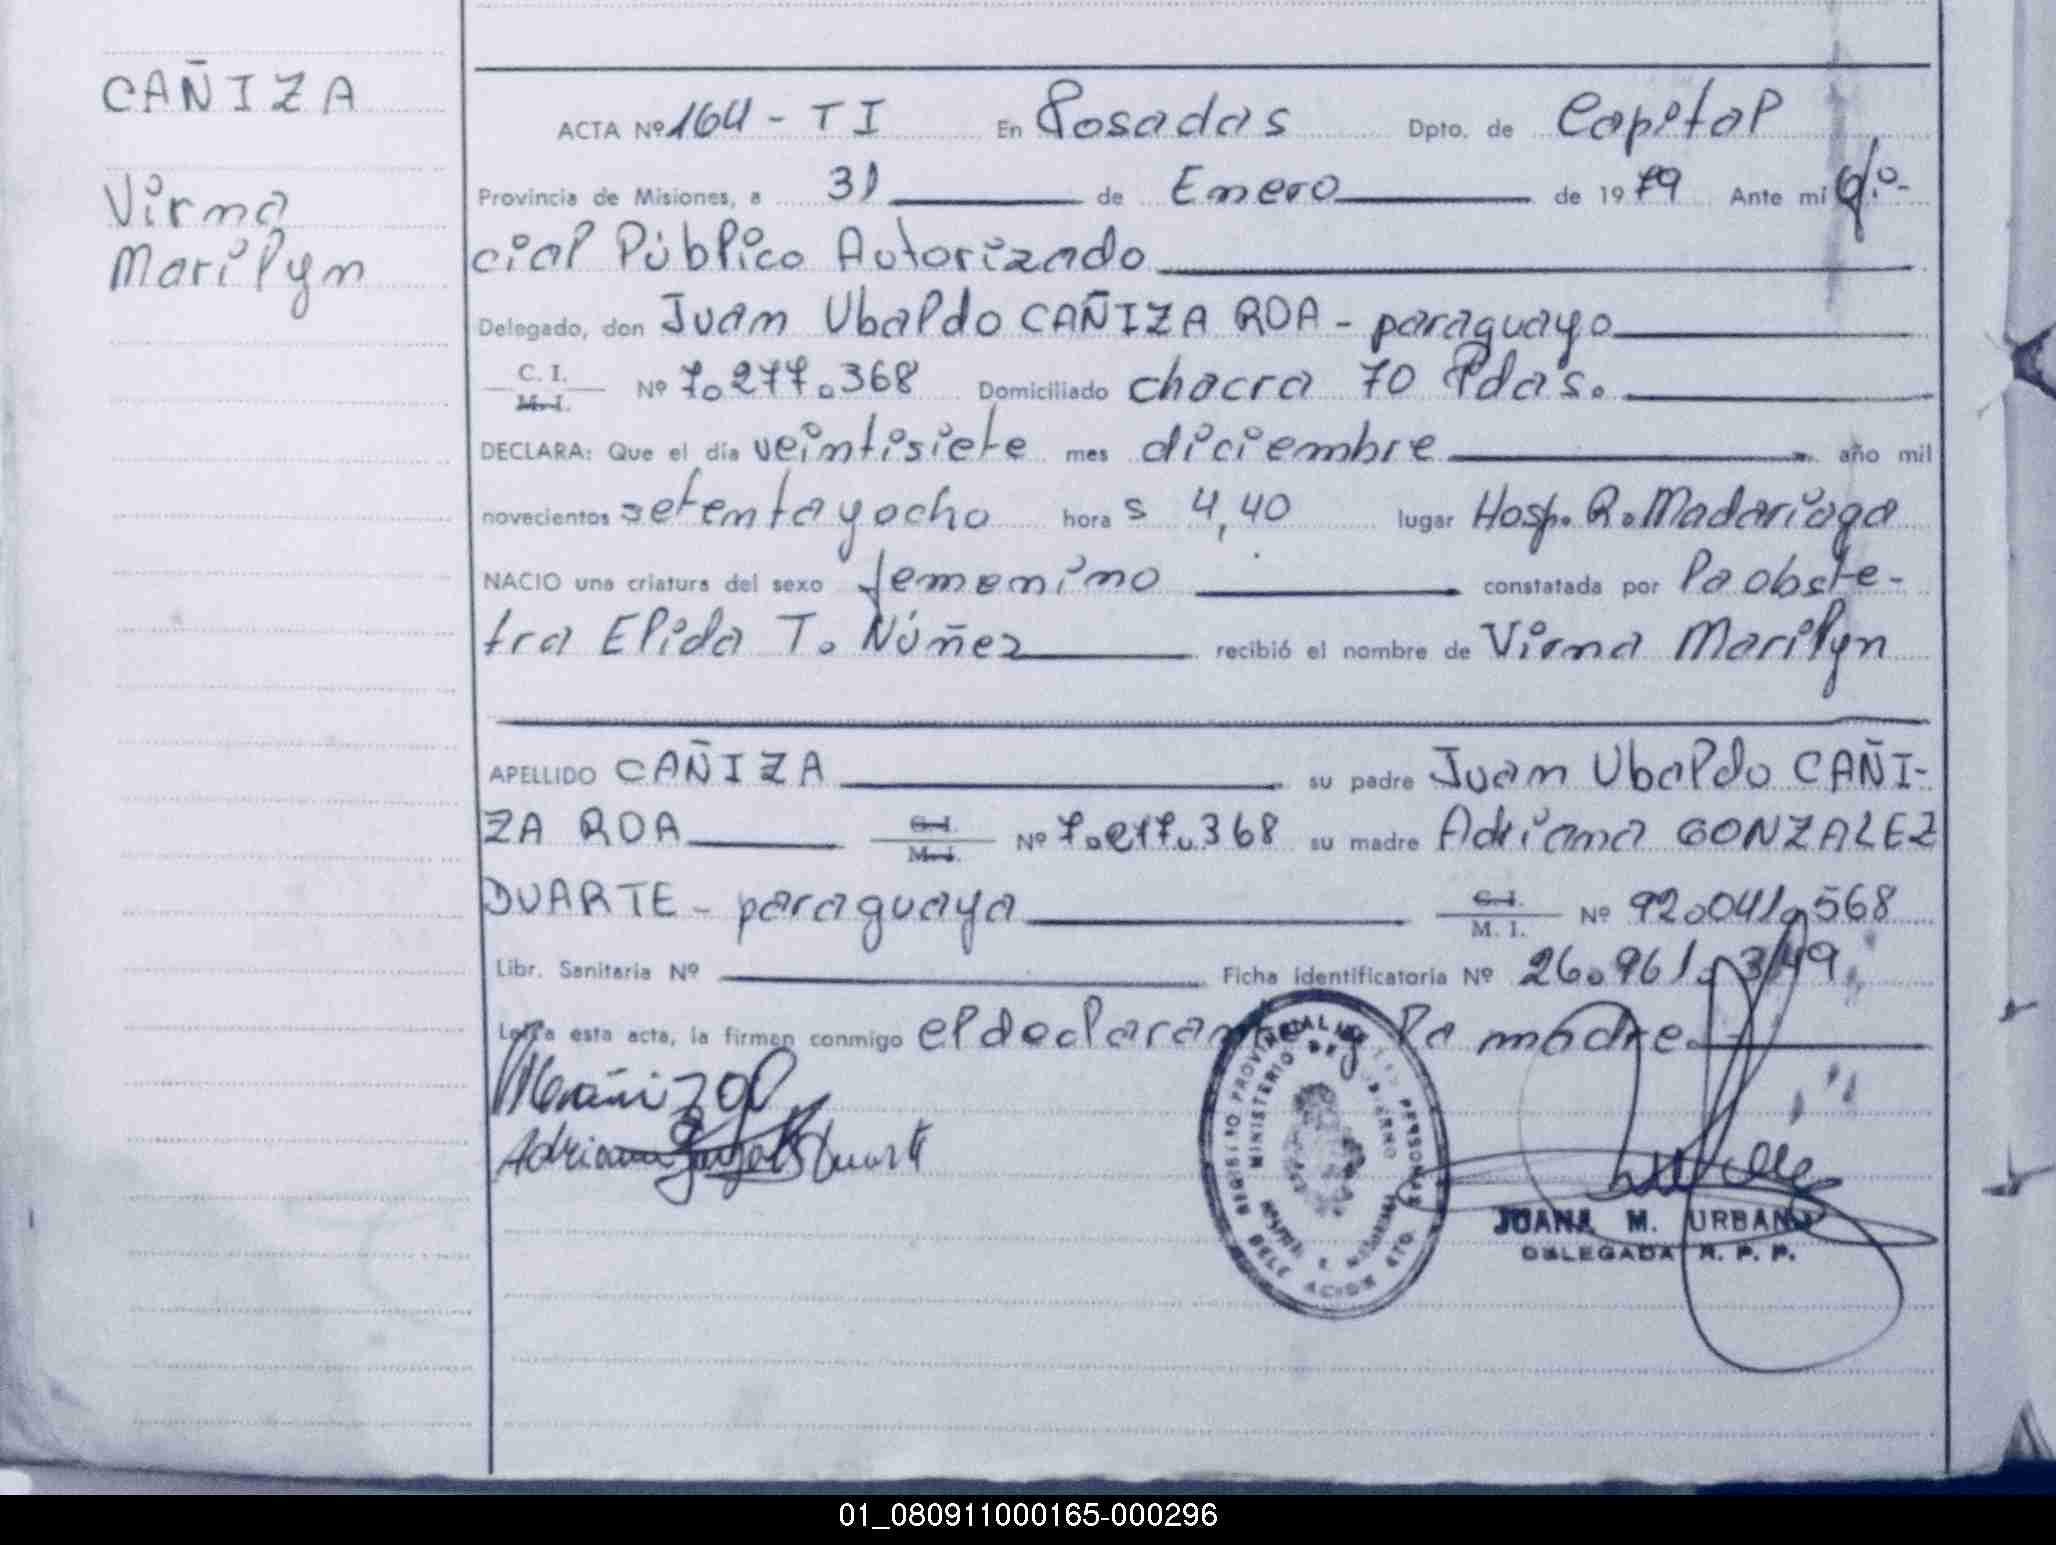 CAÑIZA
Virma
Marilyn
ACTA Nº 164 - TI En Posadas Dpto. de Capital
Provincia de Misiones, a 31 de Enero de 1979 Ante mi Ofi-
cial Público Autorizado
Delegado, don Juan Ubaldo CAÑIZA ROA - paraguayo
C. I.
M. I. Nº 7.277.368 Domiciliado chacra 70 Pdas.
DECLARA: Que el día veintisiete mes diciembre año mil
novecientos setentayocho hora s 4,40 lugar Hosp. R. Madariaga
NACIO una criatura del sexo femenino constatada por la obste-
tra Elida T. Núñez recibió el nombre de Virma Marilyn
APELLIDO CAÑIZA su padre Juan Ubaldo CAÑI-
ZA ROA C. I. M. I. Nº 7.277.368 su madre Adriana GONZALEZ
DUARTE - paraguaya C. I. M. I. Nº 92.041.568
Libr. Sanitaria Nº Ficha identificatoria Nº 26.961.349
Leída esta acta, la firman conmigo el declarante y la madre.
Adriana Duarte
REGISTRO PROVINCIAL DE LAS PERSONAS
MINISTERIO DE GOBIERNO
JUANA M. URBAN
DELEGADA R. P. P.
01_080911000165-000296